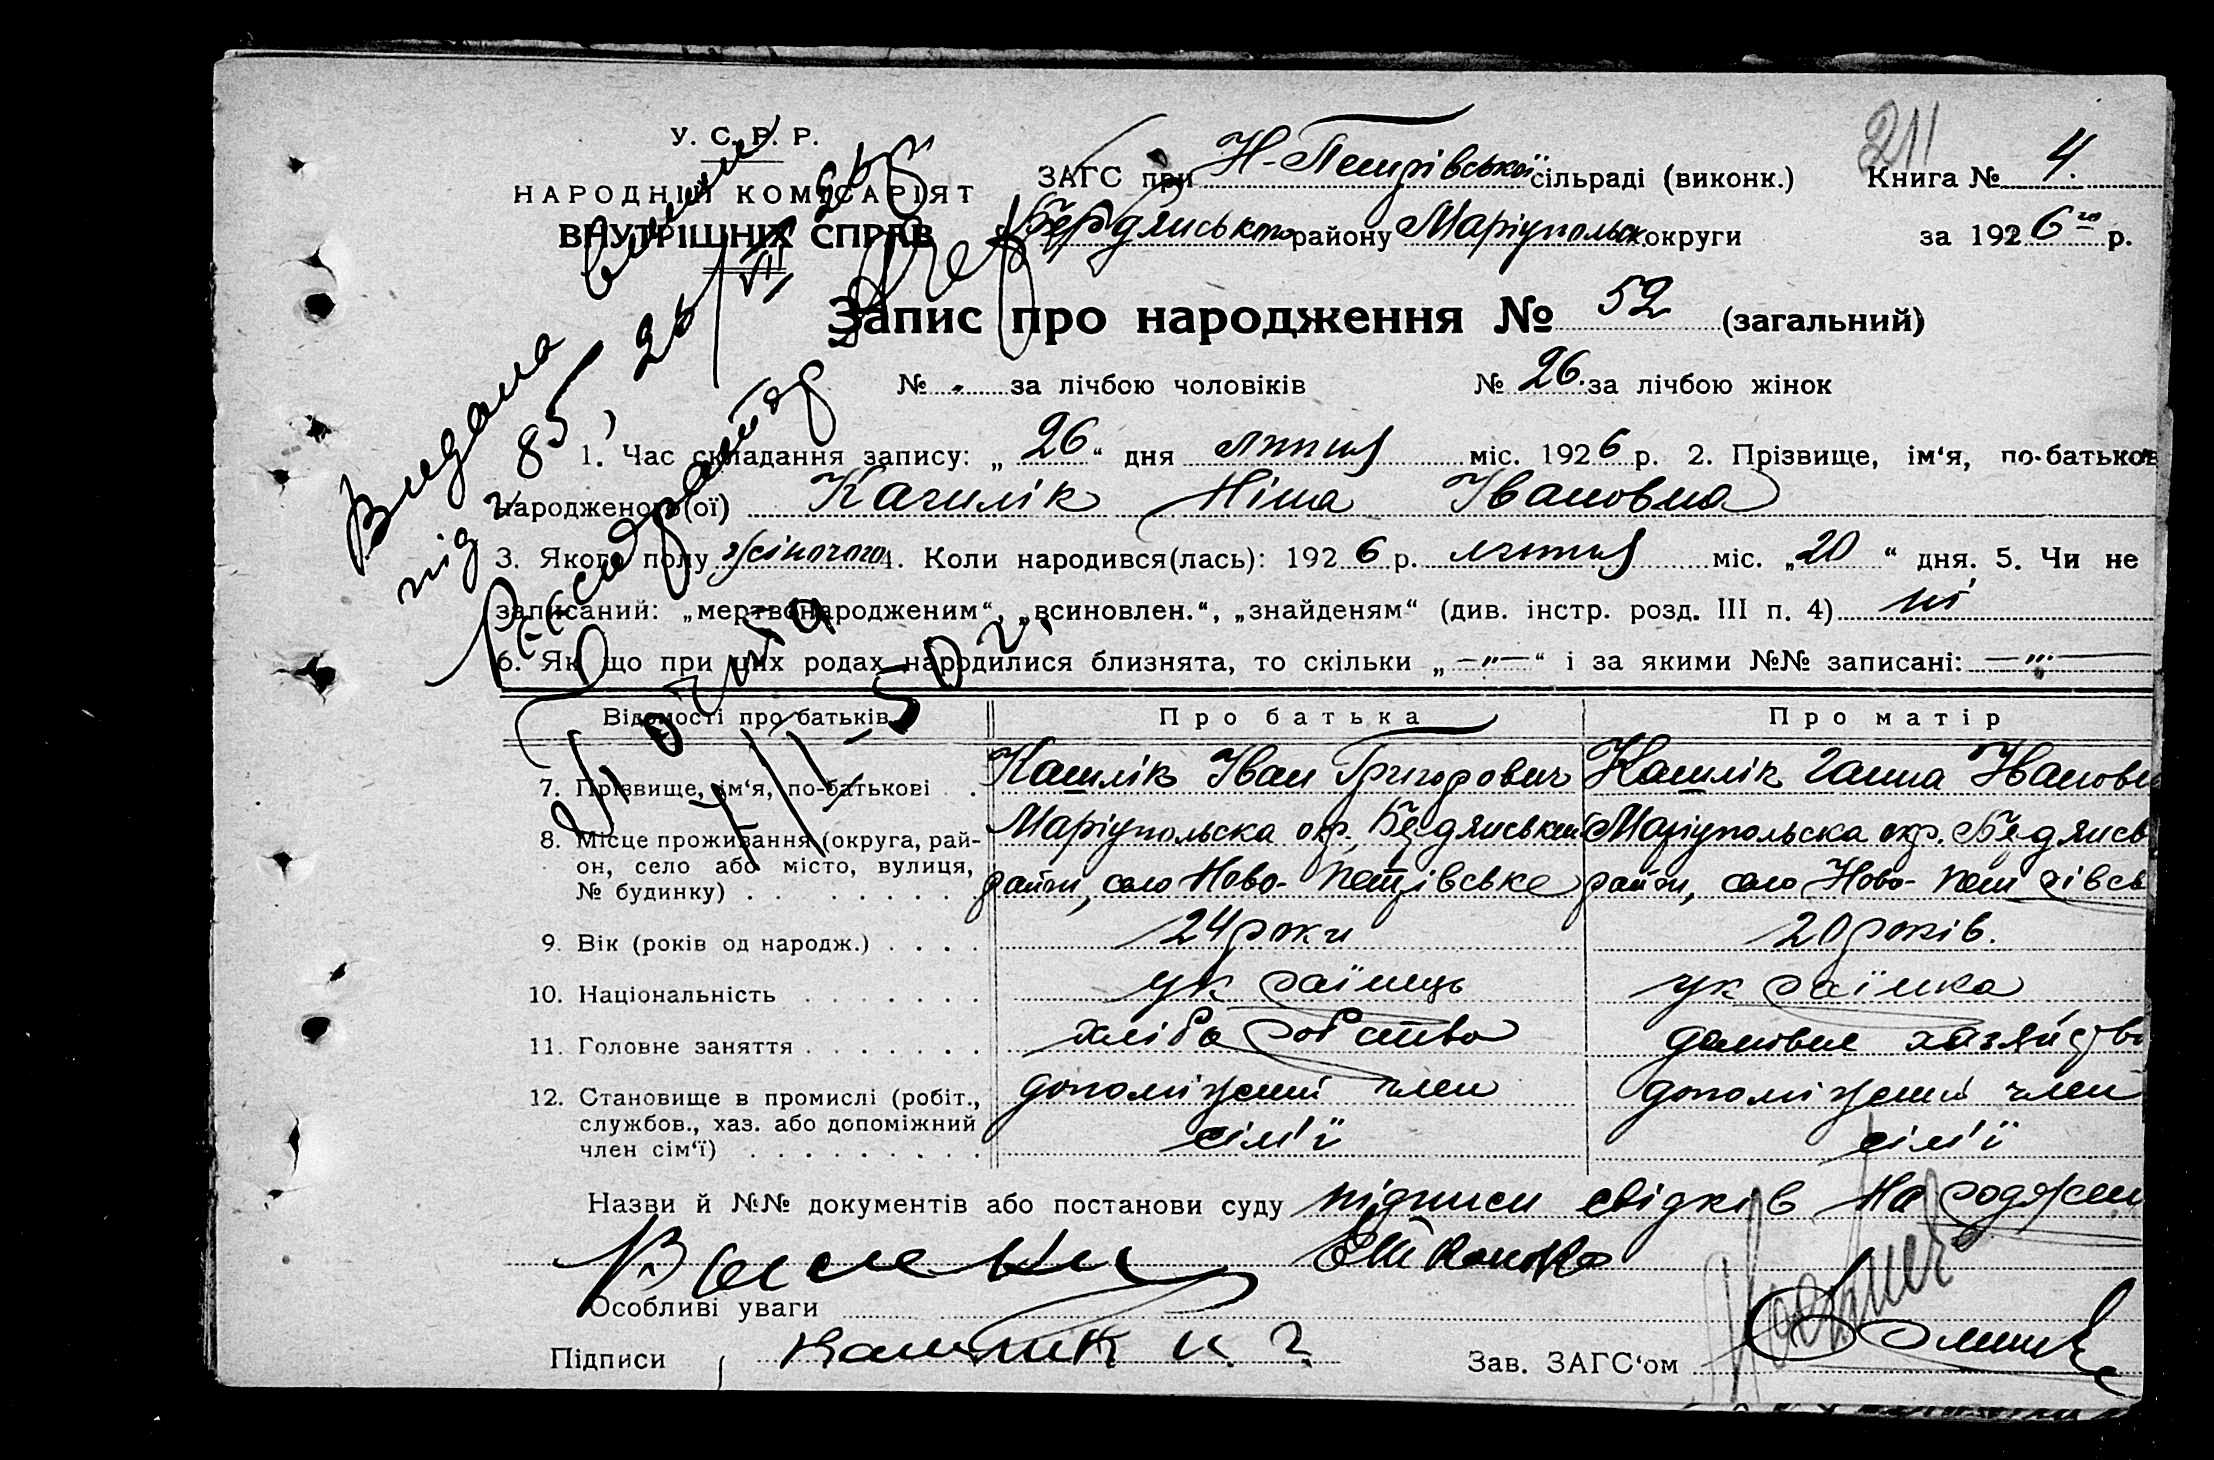 211
У. С. Р. Р.
НАРОДНІЙ КОМІСАРІЯТ
ВНУТРІШНІХ СПРАВ
ЗАГС при Н-Петрівської сільраді (виконк.) Книга № 4.
Бердянського району Маріупольск. округи за 1926 го р.
Запис про народження № 52 (загальний)
№ - за лічбою чоловіків № 26. за лічбою жінок
1. Час складання запису: „26“ дня лютня міс. 1926 р. 2. Прізвище, ім'я, по-батькові
народженого(ої) Качилік Ніна Івановна
3. Якого полу жіночого 4. Коли народився(лась): 1926 р. лютня міс. „20“ дня. 5. Чи не
записаний: „мертвонародженим“, „всиновлен.“, „знайденям“ (див. інстр. розд. III п. 4) ні
6. Як що при цих родах народилися близнята, то скільки „—"—“ і за якими №№ записані: —"—
Видана
під 85, 25
Відомості про батьків Про батька Про матір
7. Прізвище, ім'я, по-батькові . Кашлік Іван Григорович Кашлік Ганна Івановн
8. Місце проживання (округа, рай- Маріупольска окр. Бердянський Маріупольска окр. Бердянсь
он, село або місто, вулиця, район, село Ново-Петрівське район, село Ново-Петрівсь
№ будинку)
9. Вік (років од народж.) 24 роки 20 років.
10. Національність українець українка
11. Головне заняття хліборобство домовне хазяйство
12. Становище в промислі (робіт., допоміжний член допоміжний член
службов., хаз. або допоміжний сім'ї сім'ї
член сім'ї)
Назви й №№ документів або постанови суду підписи свідків народжен
Особливі уваги
Підписи Кашлик И. Г. Зав. ЗАГС'ом